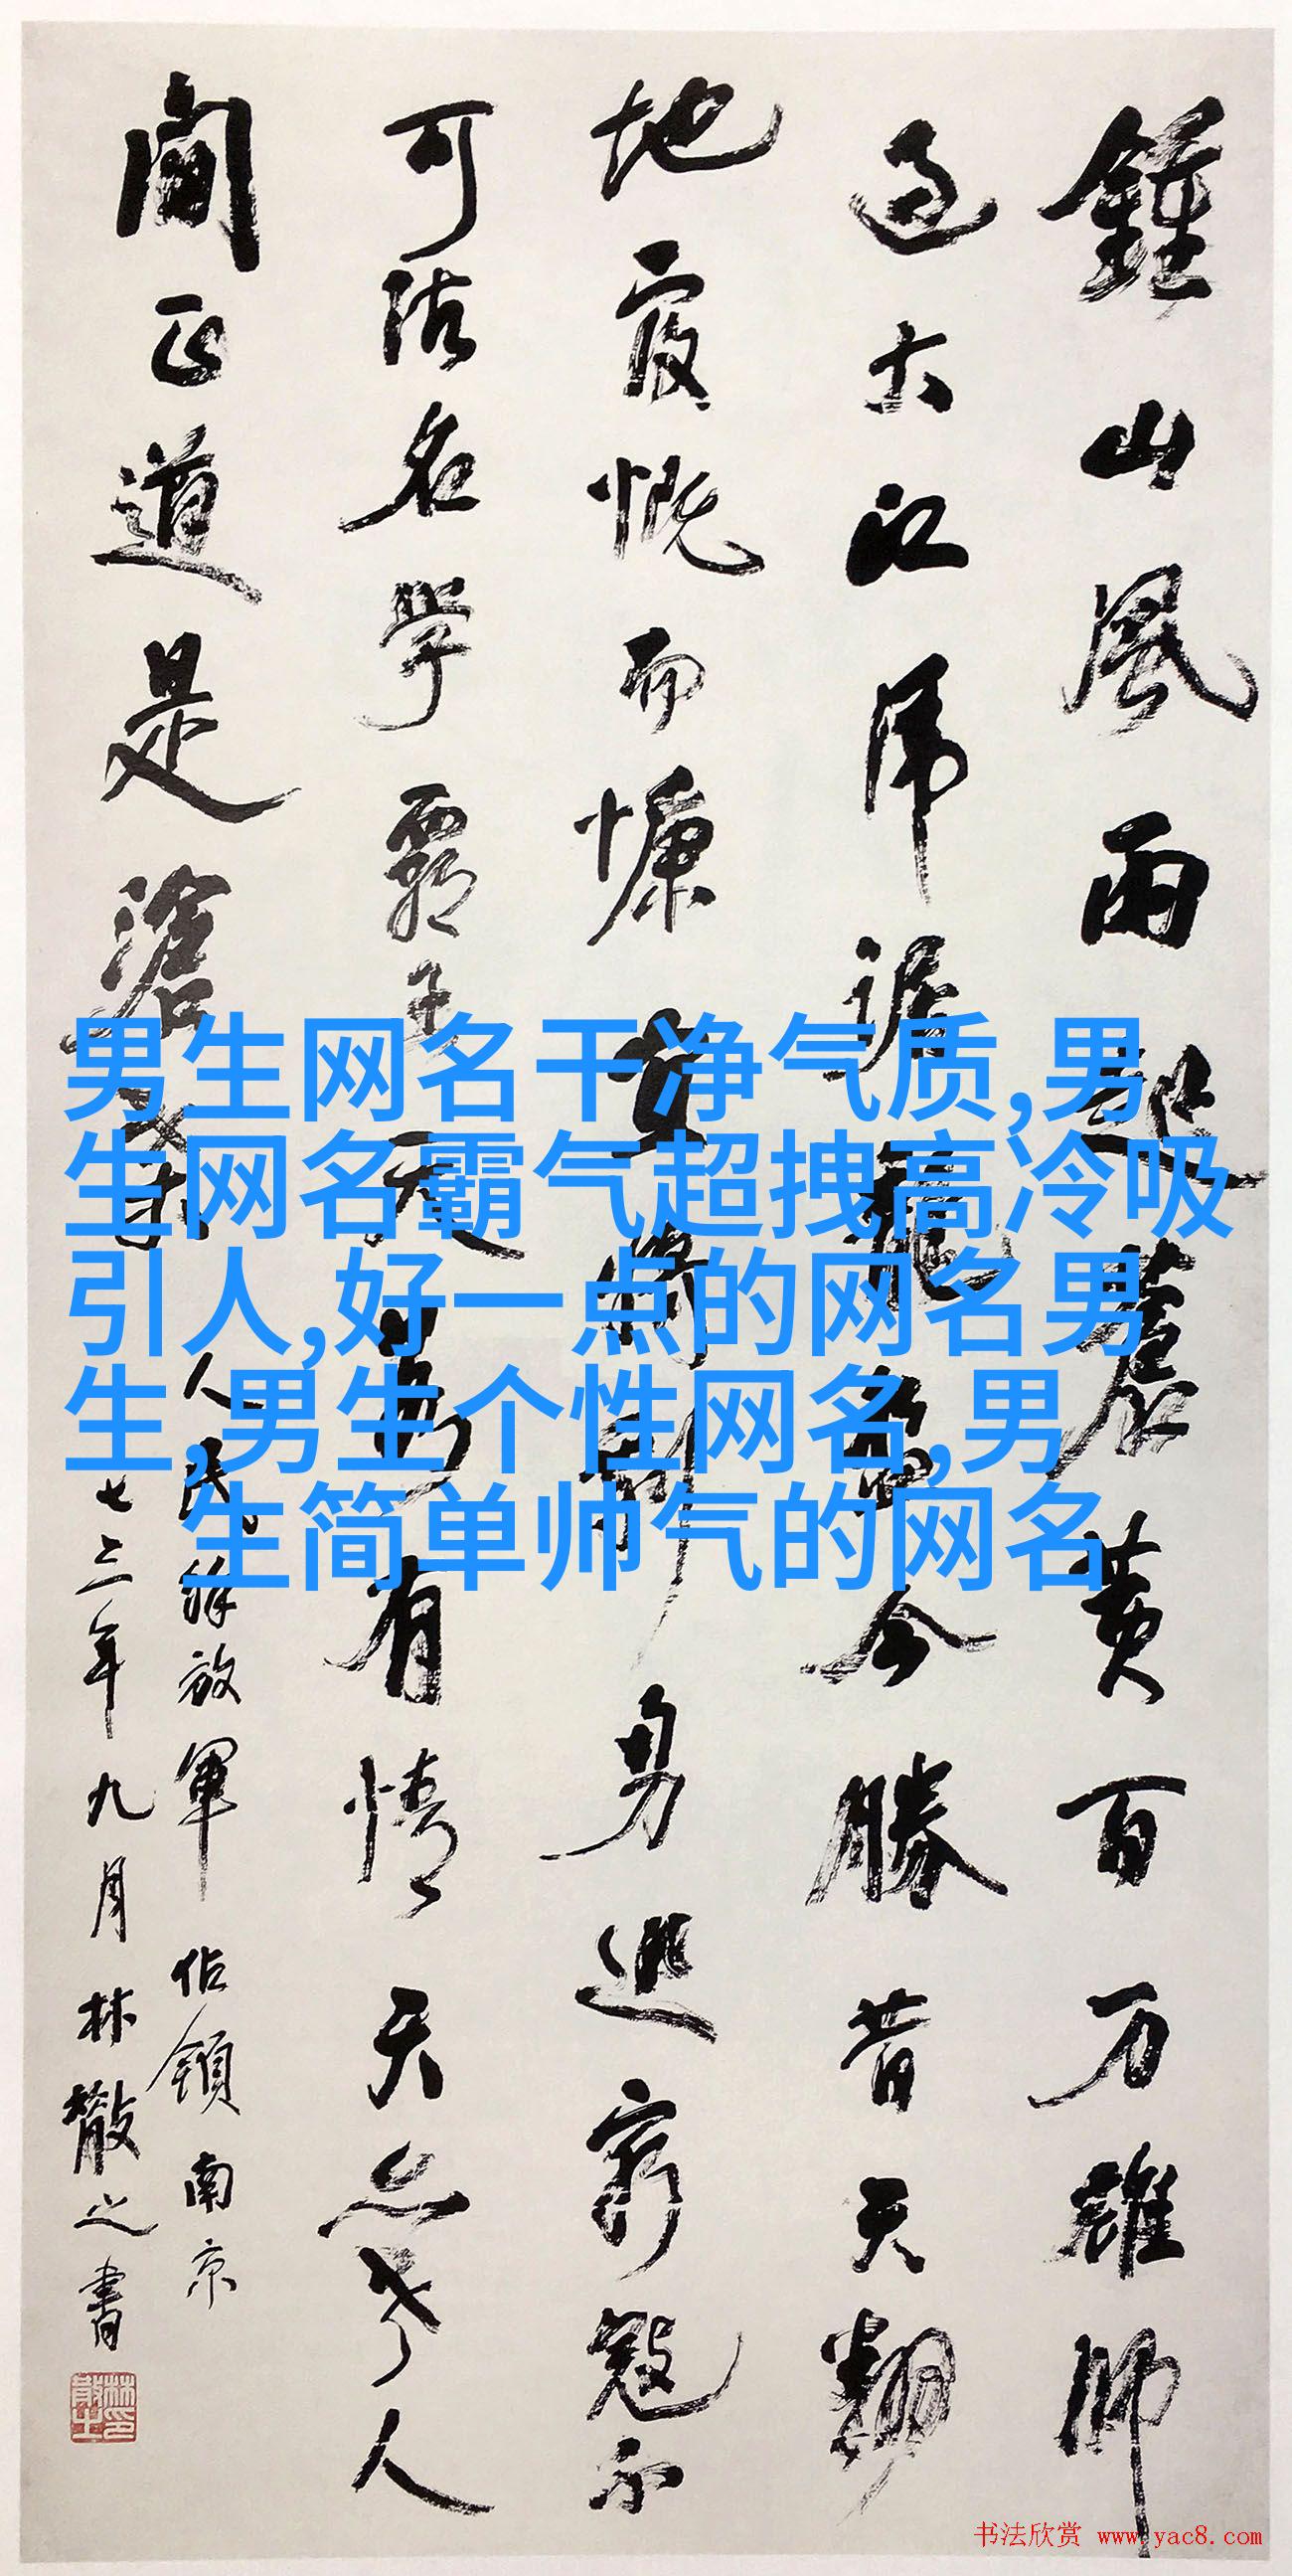 鍾山風雨起蒼黄百万雄師
过大江虎踞龍盤今勝昔天翻
地覆慨而慷宜將剩勇追窮寇不
可沽名學霸王天若有情天亦老人
間正道是滄桑
人民解放軍佔領南京
七三年九月林散之書
林散之印
男生网名干净气质,男
生网名霸气超拽高冷吸
引人,好一点的网名男
生,男生个性网名,男
生简单帅气的网名
书法欣赏 www.yac8.com